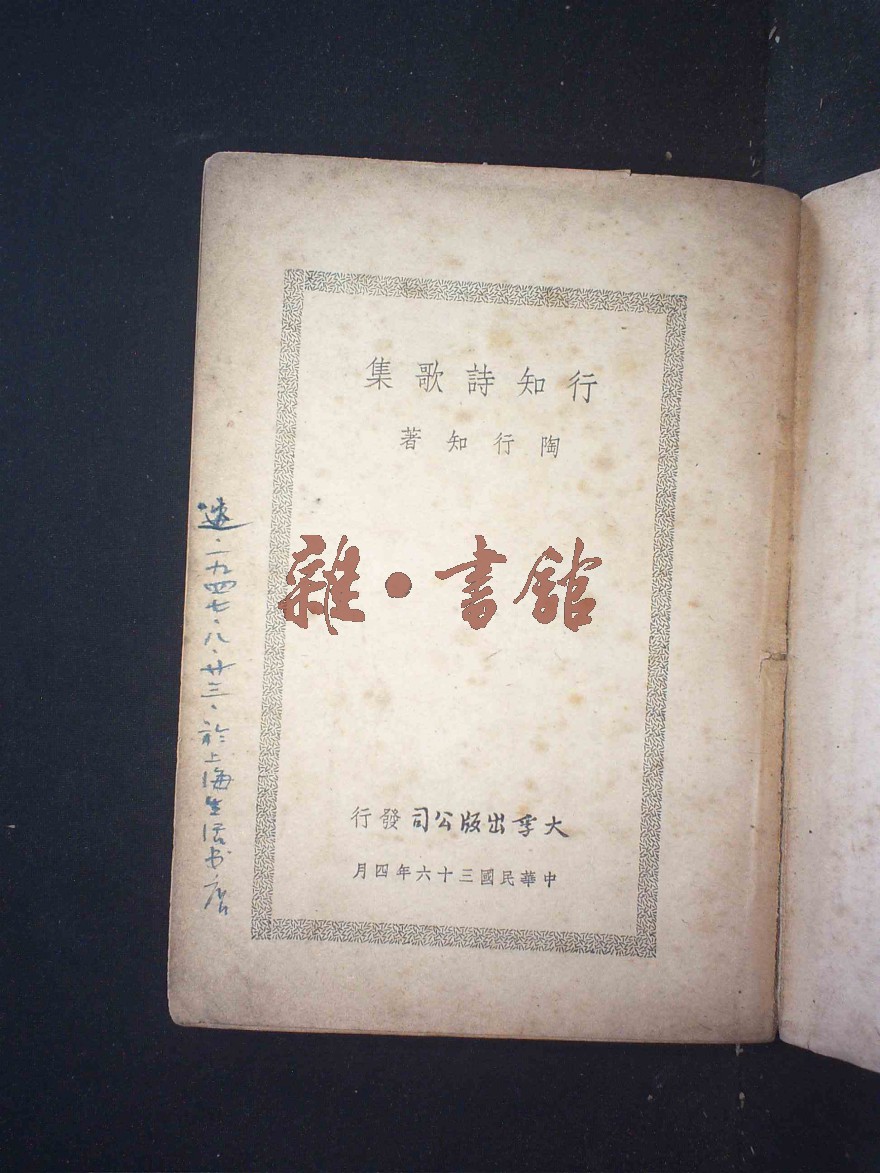 行知詩歌集
陶行知著
雜·書舘
大孚出版公司發行
中華民國三十六年四月
速·一九四七·八·廿三·於上海生活书店